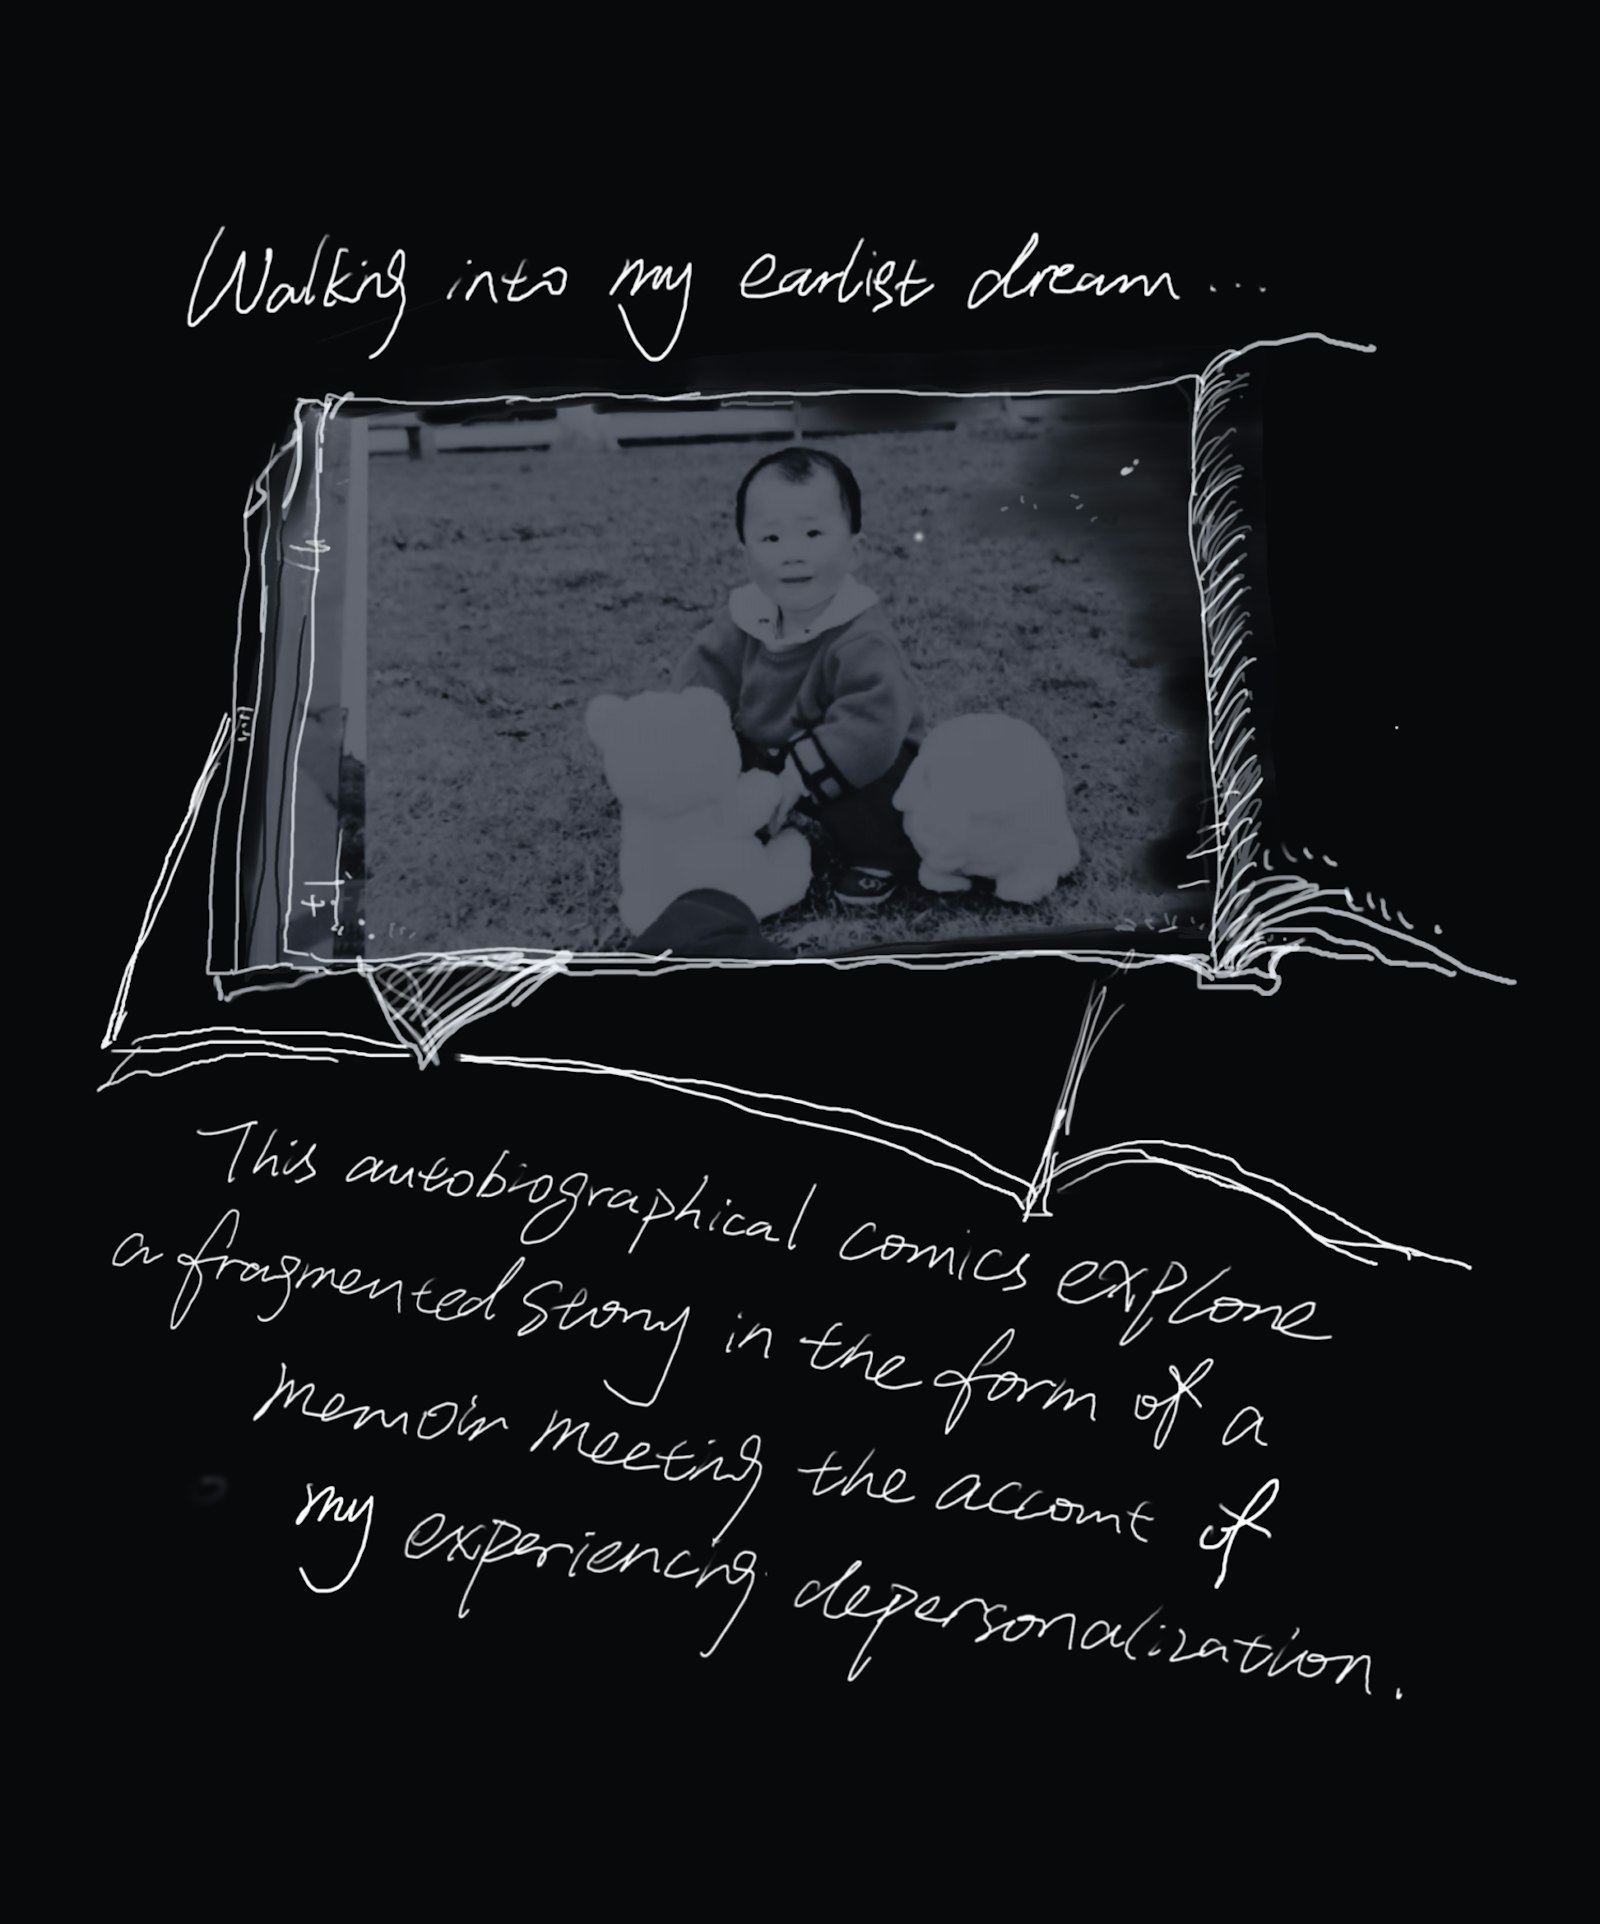 Walking into my earlist dream...
This autobiographical comics explore
a fragmented story in the form of a
memoir meeting the account of
my experiencing depersonalization.